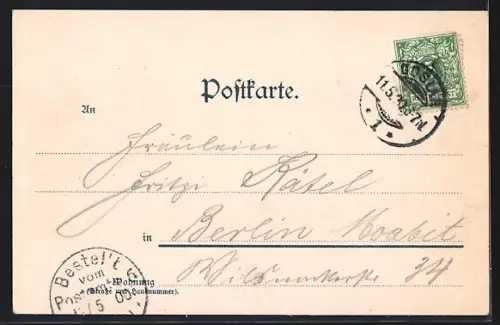 Postkarte.
GOSL
11.5.
7N.
1
An
Fräulein
Fritzi Rätel
in Berlin Moabit
Wilsnackerstr 34
Wohnung
(Straße und Hausnummer).
Bestellt
vom
Post
5 00